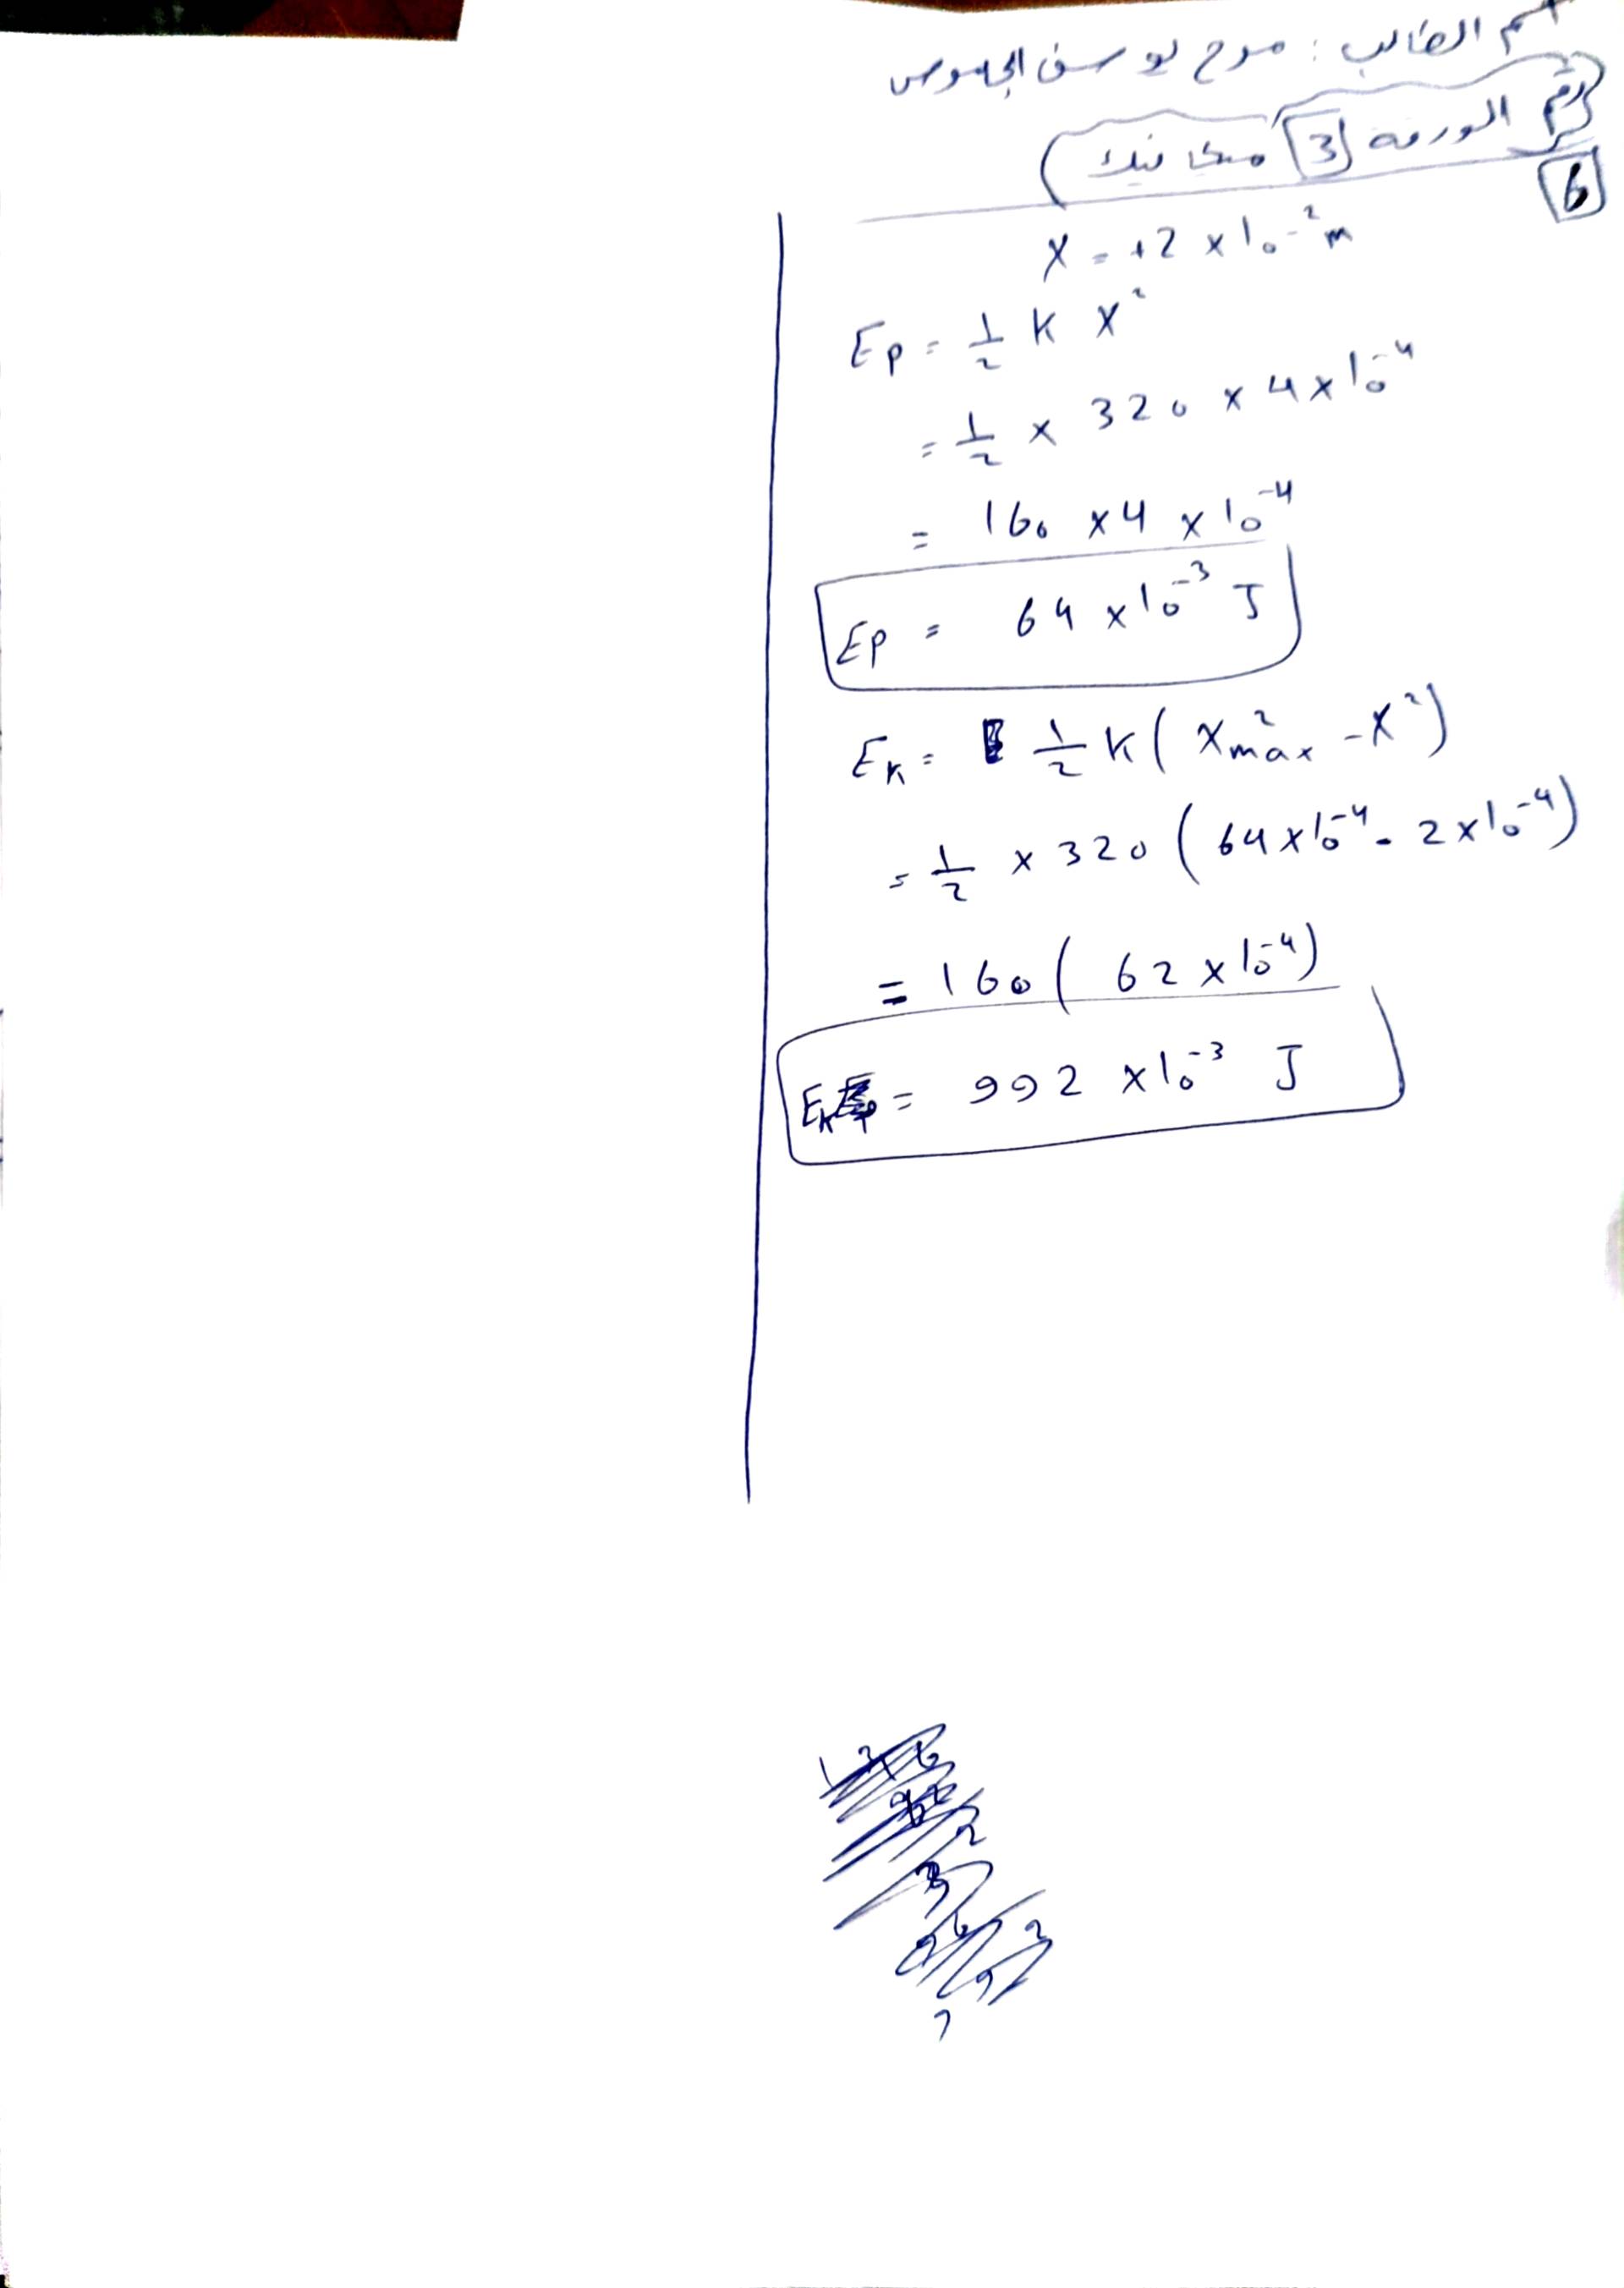 اسم الطالب : مرح يوسف الجاموس
رقم الورقة 3 ميكانيك
6
X = +2 × 10⁻² m
Ep = 1/2 K X²
= 1/2 × 320 × 4 × 10⁻⁴
= 160 × 4 × 10⁻⁴
Ep = 64 × 10⁻³ J
Ek = 1/2 K ( X²max - X² )
= 1/2 × 320 ( 64 × 10⁻⁴ - 2 × 10⁻⁴ )
= 160 ( 62 × 10⁻⁴ )
Ek = 992 × 10⁻³ J